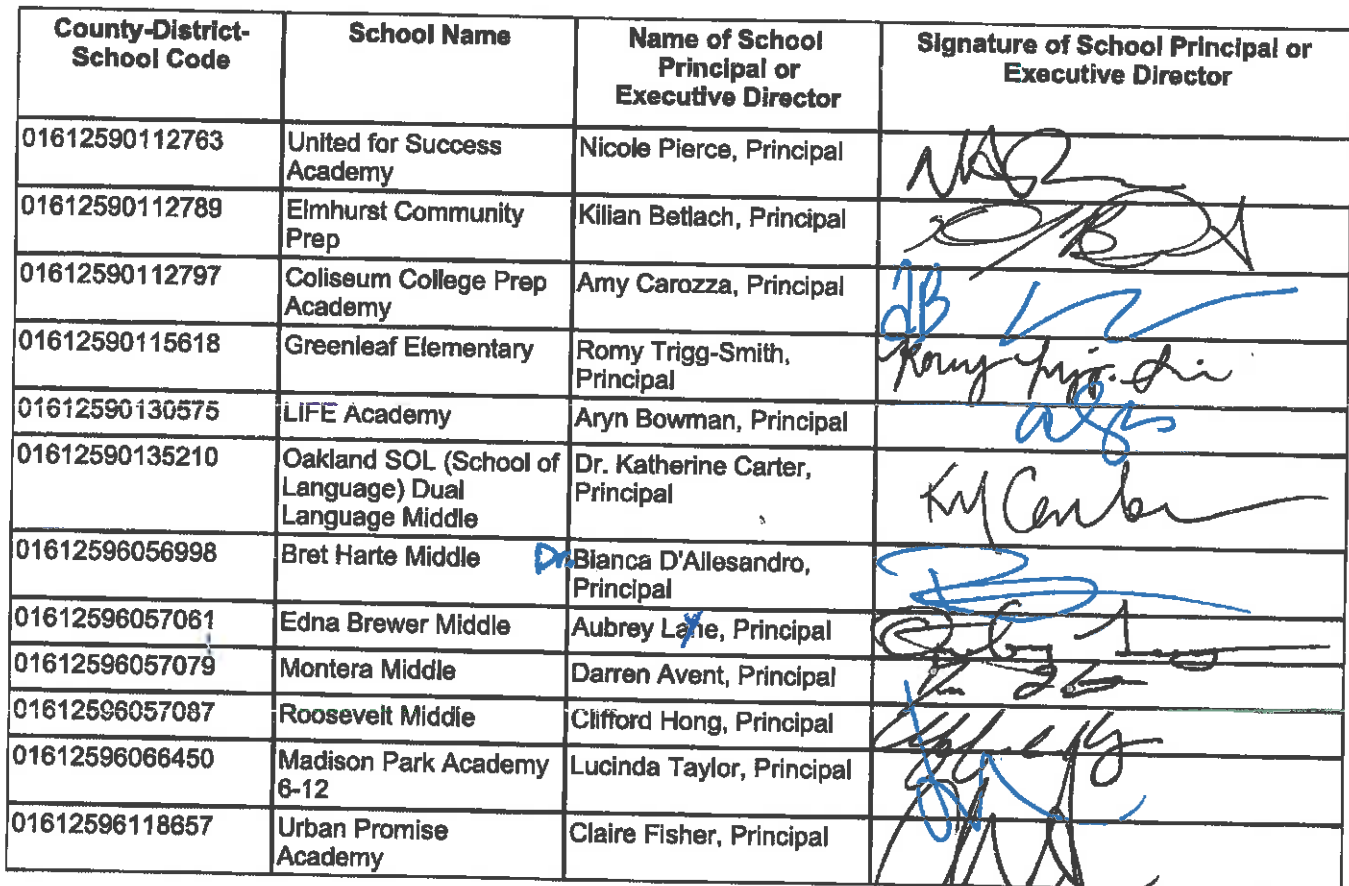 County-District-School Code School Name Name of School Principal or Executive Director Signature of School Principal or Executive Director
01612590112763 United for Success Academy Nicole Pierce, Principal
01612590112789 Elmhurst Community Prep Kilian Betlach, Principal
01612590112797 Coliseum College Prep Academy Amy Carozza, Principal
01612590115618 Greenleaf Elementary Romy Trigg-Smith, Principal
01612590130575 LIFE Academy Aryn Bowman, Principal
01612590135210 Oakland SOL (School of Language) Dual Language Middle Dr. Katherine Carter, Principal
01612596056998 Bret Harte Middle Dr. Bianca D'Allesandro, Principal
01612596057061 Edna Brewer Middle Aubrey Layne, Principal
01612596057079 Montera Middle Darren Avent, Principal
01612596057087 Roosevelt Middle Clifford Hong, Principal
01612596066450 Madison Park Academy 6-12 Lucinda Taylor, Principal
01612596118657 Urban Promise Academy Claire Fisher, Principal